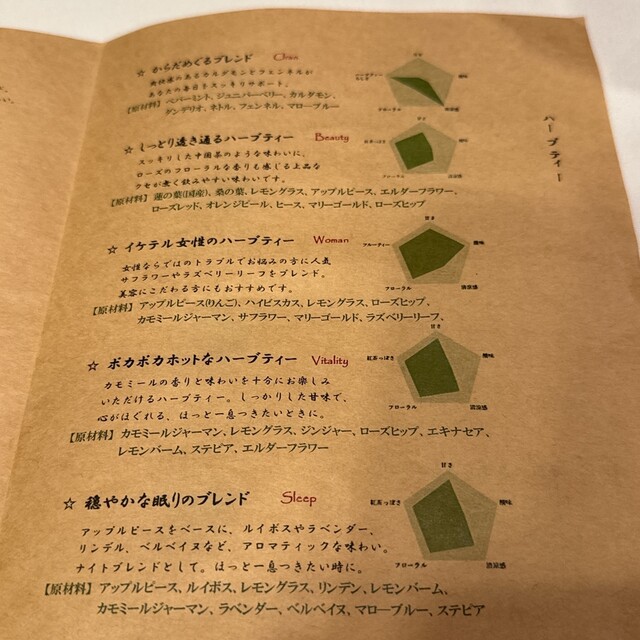 ハーブティー
☆ からだめぐるブレンド Clear
爽快感のあるカルダモンとフェンネルが
あなたの毎日をスッキリサポート。
【原材料】ペパーミント、ジュニパーベリー、カルダモン、
ダンデリオン、ネトル、フェンネル、マローブルー
甘さ
酸味
清涼感
フローラル
☆ しっとり透き通るハーブティー Beauty
スッキリした中国茶のような味わいに、
ローズのフローラルな香りも感じる上品な
クセが無く飲みやすい味わいです。
【原材料】蓮の葉(国産)、桑の葉、レモングラス、アップルピース、エルダーフラワー、
ローズレッド、オレンジピール、ヒース、マリーゴールド、ローズヒップ
甘さ
酸味
清涼感
フローラル
☆ イケテル女性のハーブティー Woman
女性ならではのトラブルでお悩みの方に人気
サフラワーやラズベリーリーフをブレンド。
美容にこだわる方にもおすすめです。
【原材料】アップルピース(りんご)、ハイビスカス、レモングラス、ローズヒップ、
カモミールジャーマン、サフラワー、マリーゴールド、ラズベリーリーフ、
甘さ
フルーティー
酸味
フローラル
清涼感
☆ ポカポカホットなハーブティー Vitality
カモミールの香りと味わいを十分にお楽しみ
いただけるハーブティー。しっかりした甘味で、
心がほぐれる、ほっと一息つきたいときに。
【原材料】カモミールジャーマン、レモングラス、ジンジャー、ローズヒップ、エキナセア、
レモンバーム、ステビア、エルダーフラワー
甘さ
紅茶っぽさ
酸味
フローラル
清涼感
☆ 穏やかな眠りのブレンド Sleep
アップルピースをベースに、ルイボスやラベンダー、
リンデル、ベルベイヌなど、アロマティックな味わい。
ナイトブレンドとして。ほっと一息つきたい時に。
【原材料】アップルピース、ルイボス、レモングラス、リンデン、レモンバーム、
カモミールジャーマン、ラベンダー、ベルベイヌ、マローブルー、ステビア
甘さ
紅茶っぽさ
酸味
フローラル
清涼感